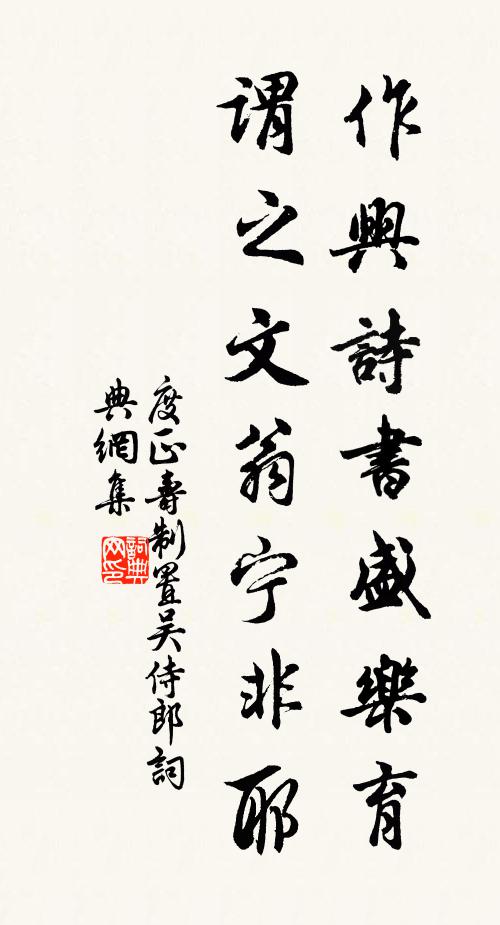 作興詩書盛樂育
謂之文翁宁非耶
度正壽制置吴侍郎詞
典網集
詞典
网印